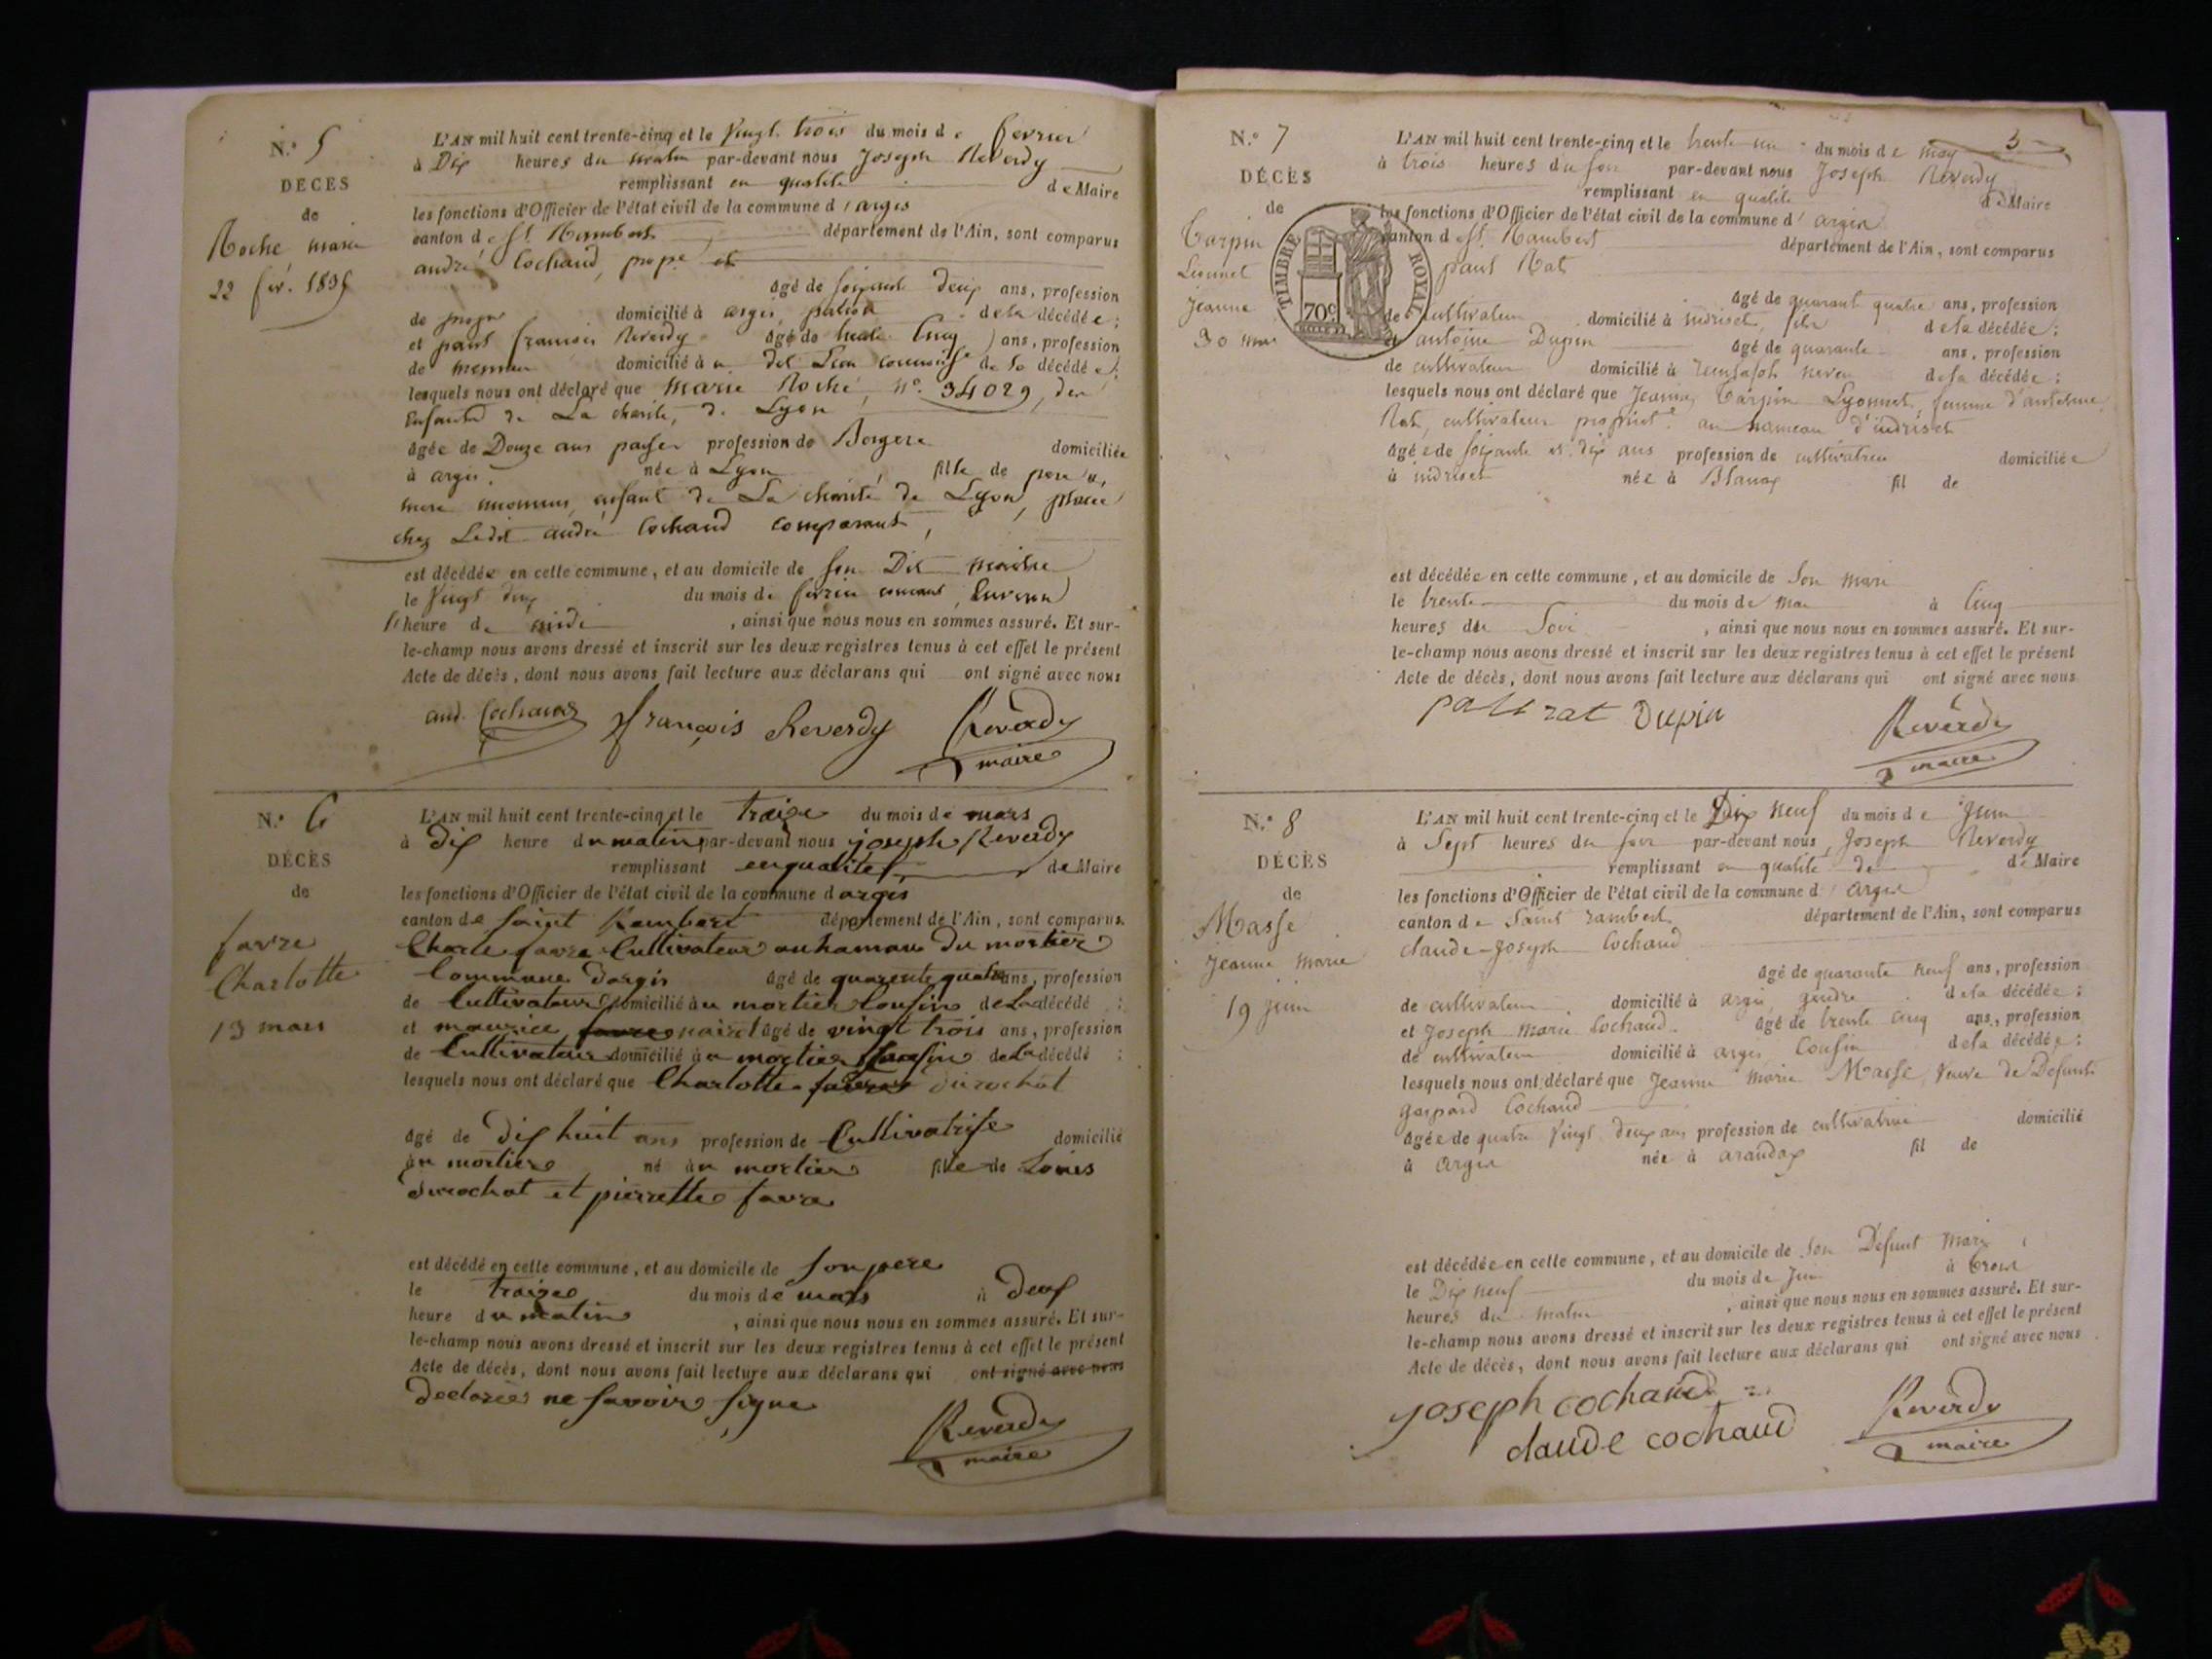 N.° 5
DÉCÈS
de
Roche marie
22 fév. 1835
L'AN mil huit cent trente-cinq et le Vingt trois du mois de fevrier
à Dix heures du matin par-devant nous Joseph Reverdy
remplissant en qualité de Maire
les fonctions d'Officier de l'état civil de la commune d'argis
canton de St. Rambert département de l'Ain, sont comparus
andré Cochaud, prop.re
âgé de soixante deux ans, profession
de propre domicilié à argis, patron de la décédée;
et paul françois Reverdy âgé de trente cinq ans, profession
de domicilié à de la décédée;
lesquels nous ont déclaré que Marie Roche, n°. 34029, des
Enfants de La charité, de Lyon
âgée de Douze ans passés profession de Bergere domiciliée
à argis, née à Lyon fille de pere &
mere inconnus, enfant de La charité de Lyon, placée
chez Ledit andré Cochaud comparant,
est décédée en cette commune, et au domicile de son Dit maitre
le Vingt deux du mois de fevrier courant, Environ
1 heure de midi, ainsi que nous nous en sommes assuré. Et sur-
le-champ nous avons dressé et inscrit sur les deux registres tenus à cet effet le présent
Acte de décès, dont nous avons fait lecture aux déclarans qui ont signé avec nous
and. Cochaud françois Reverdy Reverdy
maire
N.° 6
DÉCÈS
de
favre
Charlotte
13 mars
L'AN mil huit cent trente-cinq et le traize du mois de mars
à dix heure du matin par-devant nous joseph Reverdy
remplissant enqualite de Maire
les fonctions d'Officier de l'état civil de la commune dargis
canton de saint Rambert département de l'Ain, sont comparus.
Charle favre Cultivateur auhamau du mortier
Commune dargis âgé de quarente quatre ans, profession
de Cultivateur domicilié àu mortier Cousin de La décédé;
et maurice favre âgé de vingt trois ans, profession
de Cultivateur domicilié àu mortier Cousin de La décédé;
lesquels nous ont déclaré que Charlotte favre durochat
âgé de dix huit ans profession de Cultivatrise domicilié
àu mortier né àu mortier fille de Louis
durochat et pierrette favre
est décédé en cette commune, et au domicile de son pere
le traize du mois de mars à deux
heure du matin, ainsi que nous nous en sommes assuré. Et sur-
le-champ nous avons dressé et inscrit sur les deux registres tenus à cet effet le présent
Acte de décès, dont nous avons fait lecture aux déclarans qui ont signé avec nous
declarés ne savoir signe
Reverdy
maire
3
N.° 7
DÉCÈS
de
Tarpin
Lionnet
Jeanne
30 mai
TIMBRE ROYAL
70c
L'AN mil huit cent trente-cinq et le trente un du mois de may
à trois heures du soir par-devant nous Joseph Reverdy
remplissant en qualité de Maire
les fonctions d'Officier de l'état civil de la commune d'argis
canton de St. Rambert département de l'Ain, sont comparus
paul Rat
âgé de quarante quatre ans, profession
de Cultivateur domicilié à indriset, fils de la décédée;
et antoine Dupin âgé de quarante ans, profession
de cultivateur domicilié à neveu de la décédée;
lesquels nous ont déclaré que Jeanne Tarpin Lyonnet, femme d'antoine
Rat, cultivateur propriet.re au hameau d'indriset
âgée de soixante et dix ans profession de cultivatrice domiciliée
à indriset née à Blanaz fil de
est décédée en cette commune, et au domicile de son mari
le trente du mois de mai à Cinq
heures du Soir, ainsi que nous nous en sommes assuré. Et sur-
le-champ nous avons dressé et inscrit sur les deux registres tenus à cet effet le présent
Acte de décès, dont nous avons fait lecture aux déclarans qui ont signé avec nous
paul rat Dupin Reverdy
maire
N.° 8
DÉCÈS
de
Masse
Jeanne Marie
19 juin
L'AN mil huit cent trente-cinq et le Dix neuf du mois de Juin
à Sept heures du soir par-devant nous, Joseph Reverdy
remplissant en qualité de de Maire
les fonctions d'Officier de l'état civil de la commune d'argis
canton de Saint rambert département de l'Ain, sont comparus
claude-Joseph Cochaud
âgé de quarante neuf ans, profession
de cultivateur domicilié à argis, gendre de la décédée;
et Joseph Marie Cochaud. âgé de trente cinq ans, profession
de cultivateur domicilié à argis, Cousin de la décédée;
lesquels nous ont déclaré que Jeanne Marie Masse, Veuve de Defunt
gaspard Cochaud
âgée de quatre Vingt deux ans profession de cultivatrice domicilié
à argis née à arandas fil de
est décédée en cette commune, et au domicile de son Defunt Mari,
le Dix neuf du mois de Juin à trois
heures du matin, ainsi que nous nous en sommes assuré. Et sur-
le-champ nous avons dressé et inscrit sur les deux registres tenus à cet effet le présent
Acte de décès, dont nous avons fait lecture aux déclarans qui ont signé avec nous
joseph cochaud Reverdy
claude cochaud maire